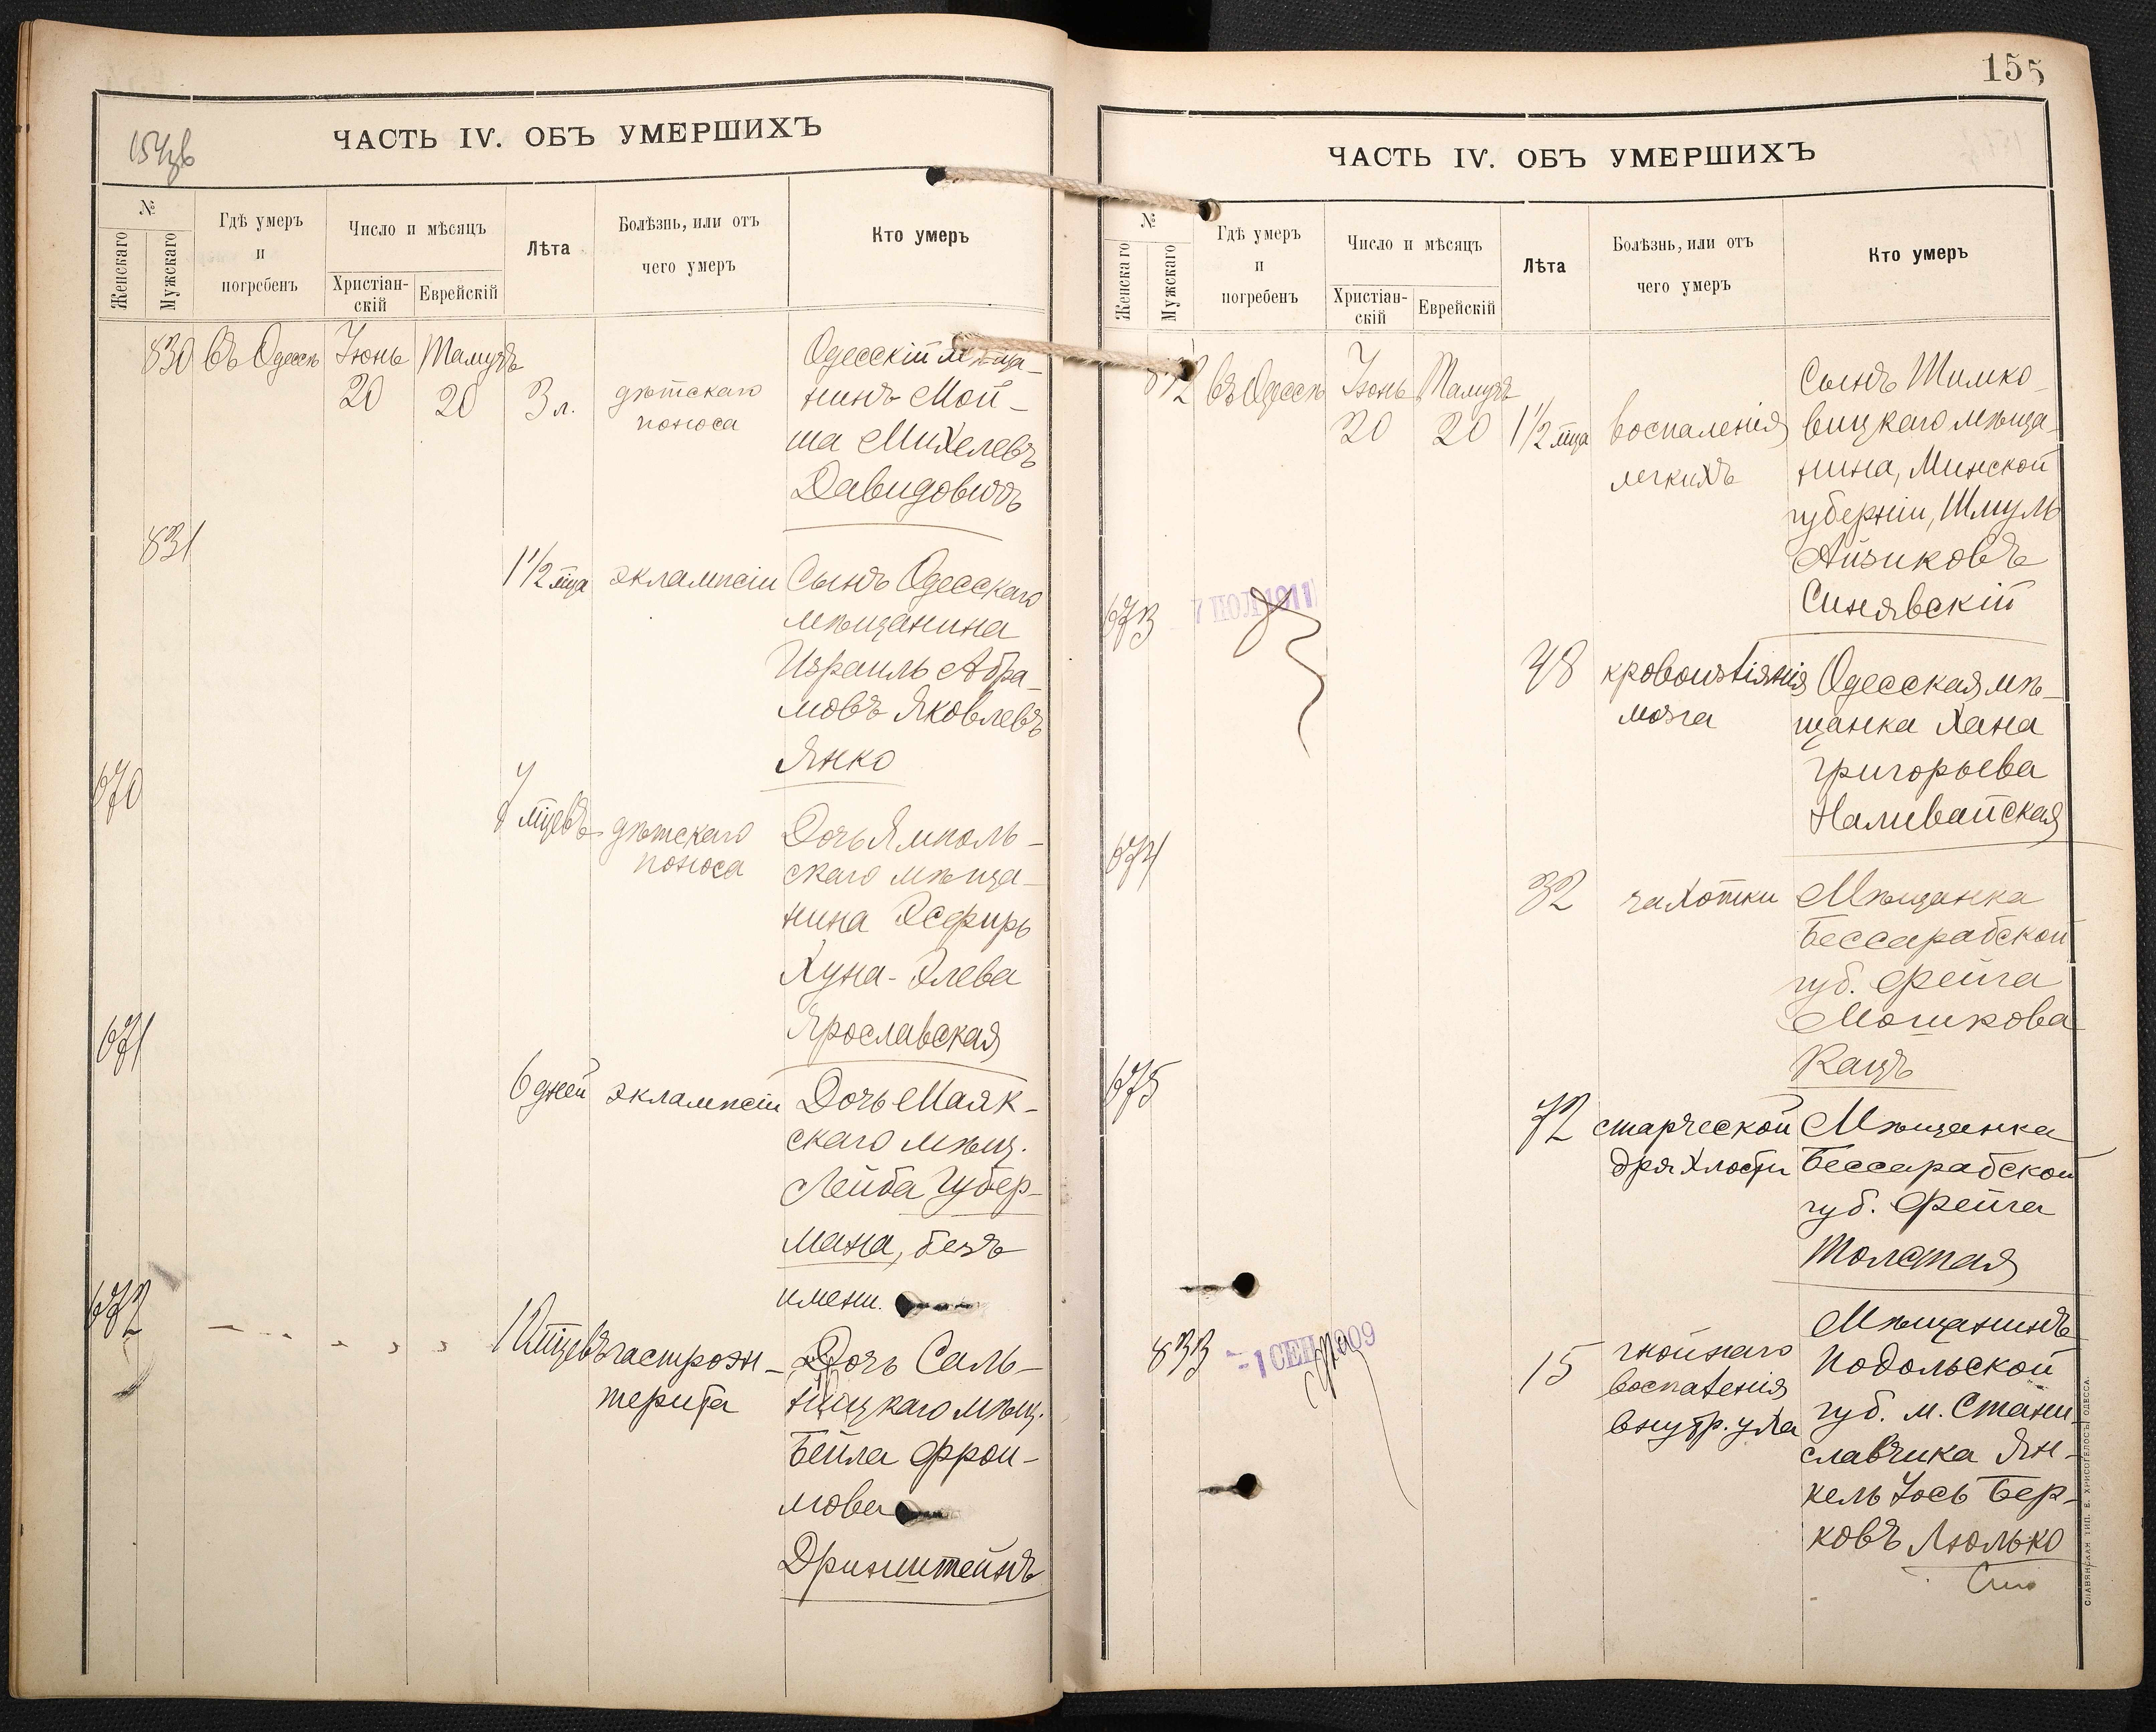 ЧАСТЬ IV. ОБЪ УМЕРШИХЪ
№
Женскаго
Мужскаго
Гдѣ умеръ
и
погребенъ
Число и мѣсяцъ
Христіан-
скій
Еврейскій
Лѣта
Болѣзнь, или отъ
чего умеръ
Кто умеръ
830 Въ Одессѣ Іюнь 20 Тамузъ 20 3 л.
дѣтскаго
поноса
Одесскій мѣща-
нинъ Мой-
ша Михелевъ
Давидовичъ
831
1 1/2 мца эклампсіи
Сынъ Одесскаго
мѣщанина
Израиль Абра-
мовъ Яковлевъ
Янко
670
7 мцевъ дѣтскаго
поноса
Дочь Ямполь-
скаго мѣща-
нина Эсфирь
Хуна-Элева
Ярославская
671
6 дней эклампсіи
Дочь Маяк-
скаго мѣщ.
Лейба Губер-
мана, безъ
имени.
672
мцевъ гастроэн-
терита
Дочь Саль-
ницкаго мѣщ.
Бейла Фрои-
мова
Дринштейнъ
155
ЧАСТЬ IV. ОБЪ УМЕРШИХЪ
№
Женскаго
Мужскаго
Гдѣ умеръ
и
погребенъ
Число и мѣсяцъ
Христіан-
скій
Еврейскій
Лѣта
Болѣзнь, или отъ
чего умеръ
Кто умеръ
832 Въ Одессѣ Іюнь 20 Тамузъ 20 1 1/2 мца
воспаленія
легкихъ
Сынъ Шимко-
вицкаго мѣща-
нина, Минской
губерніи, Шмуль
Айзиковъ
Синявскій
673
7 ИЮЛ 1911
48 кровоизліянія
мозга
Одесская мѣ-
щанка Хана
Григорьева
Наливайская
674
32 чахотки
Мѣщанка
Бессарабской
губ. Фейга
Мошкова
Кацъ
675
72 старческой
дряхлости
Мѣщанка
Бессарабской
губ. Фейга
Толстая
833
-1 СЕН 1909
15 гнойнаго
воспаленія
внутр. уха
Мѣщанинъ
Подольской
губ. м. Стани-
славчика Ян-
кель Іось Бер-
ковъ Люлько
СЛАВЯНСКАЯ ТИП. Е. ХРИСОГЕЛОСЪ, ОДЕССА.